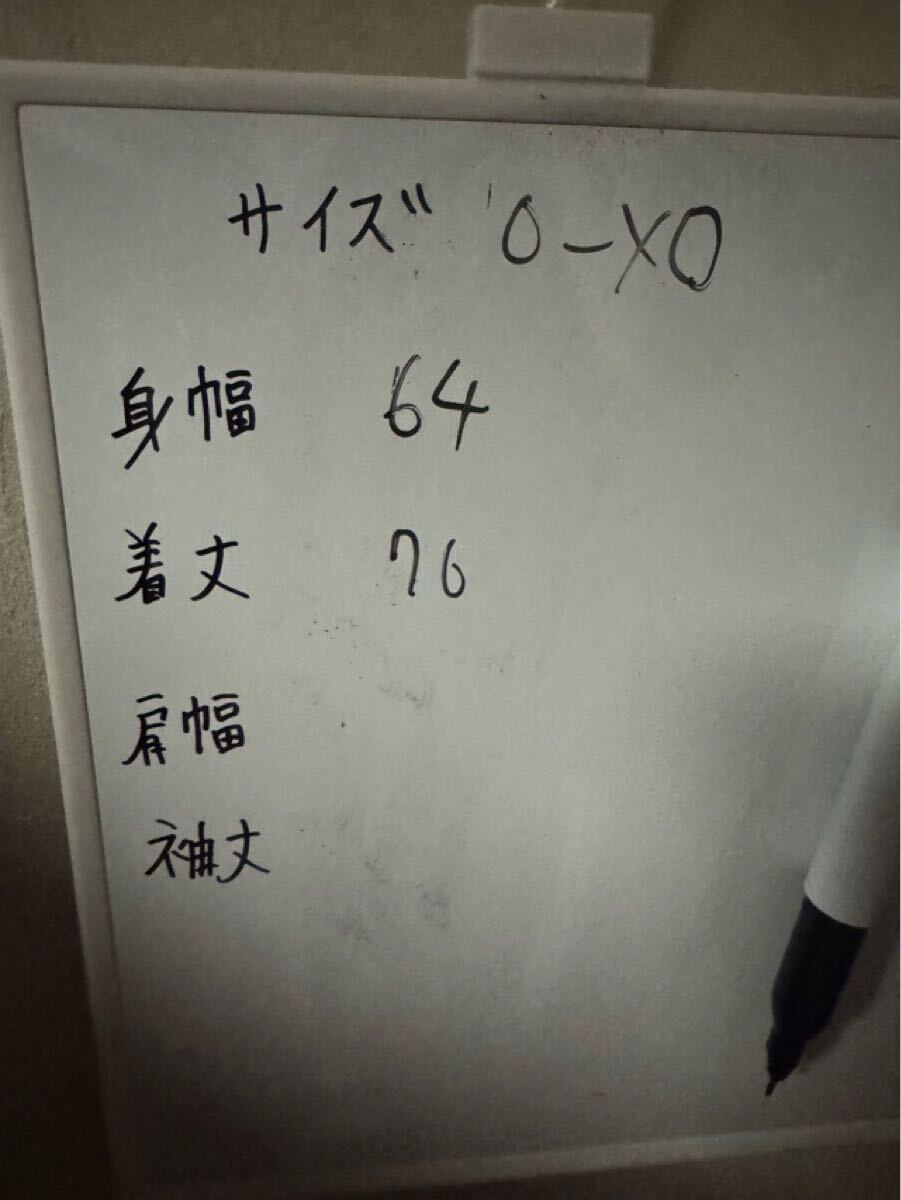 サイズ O-XO
身幅 64
着丈 76
肩幅
袖丈